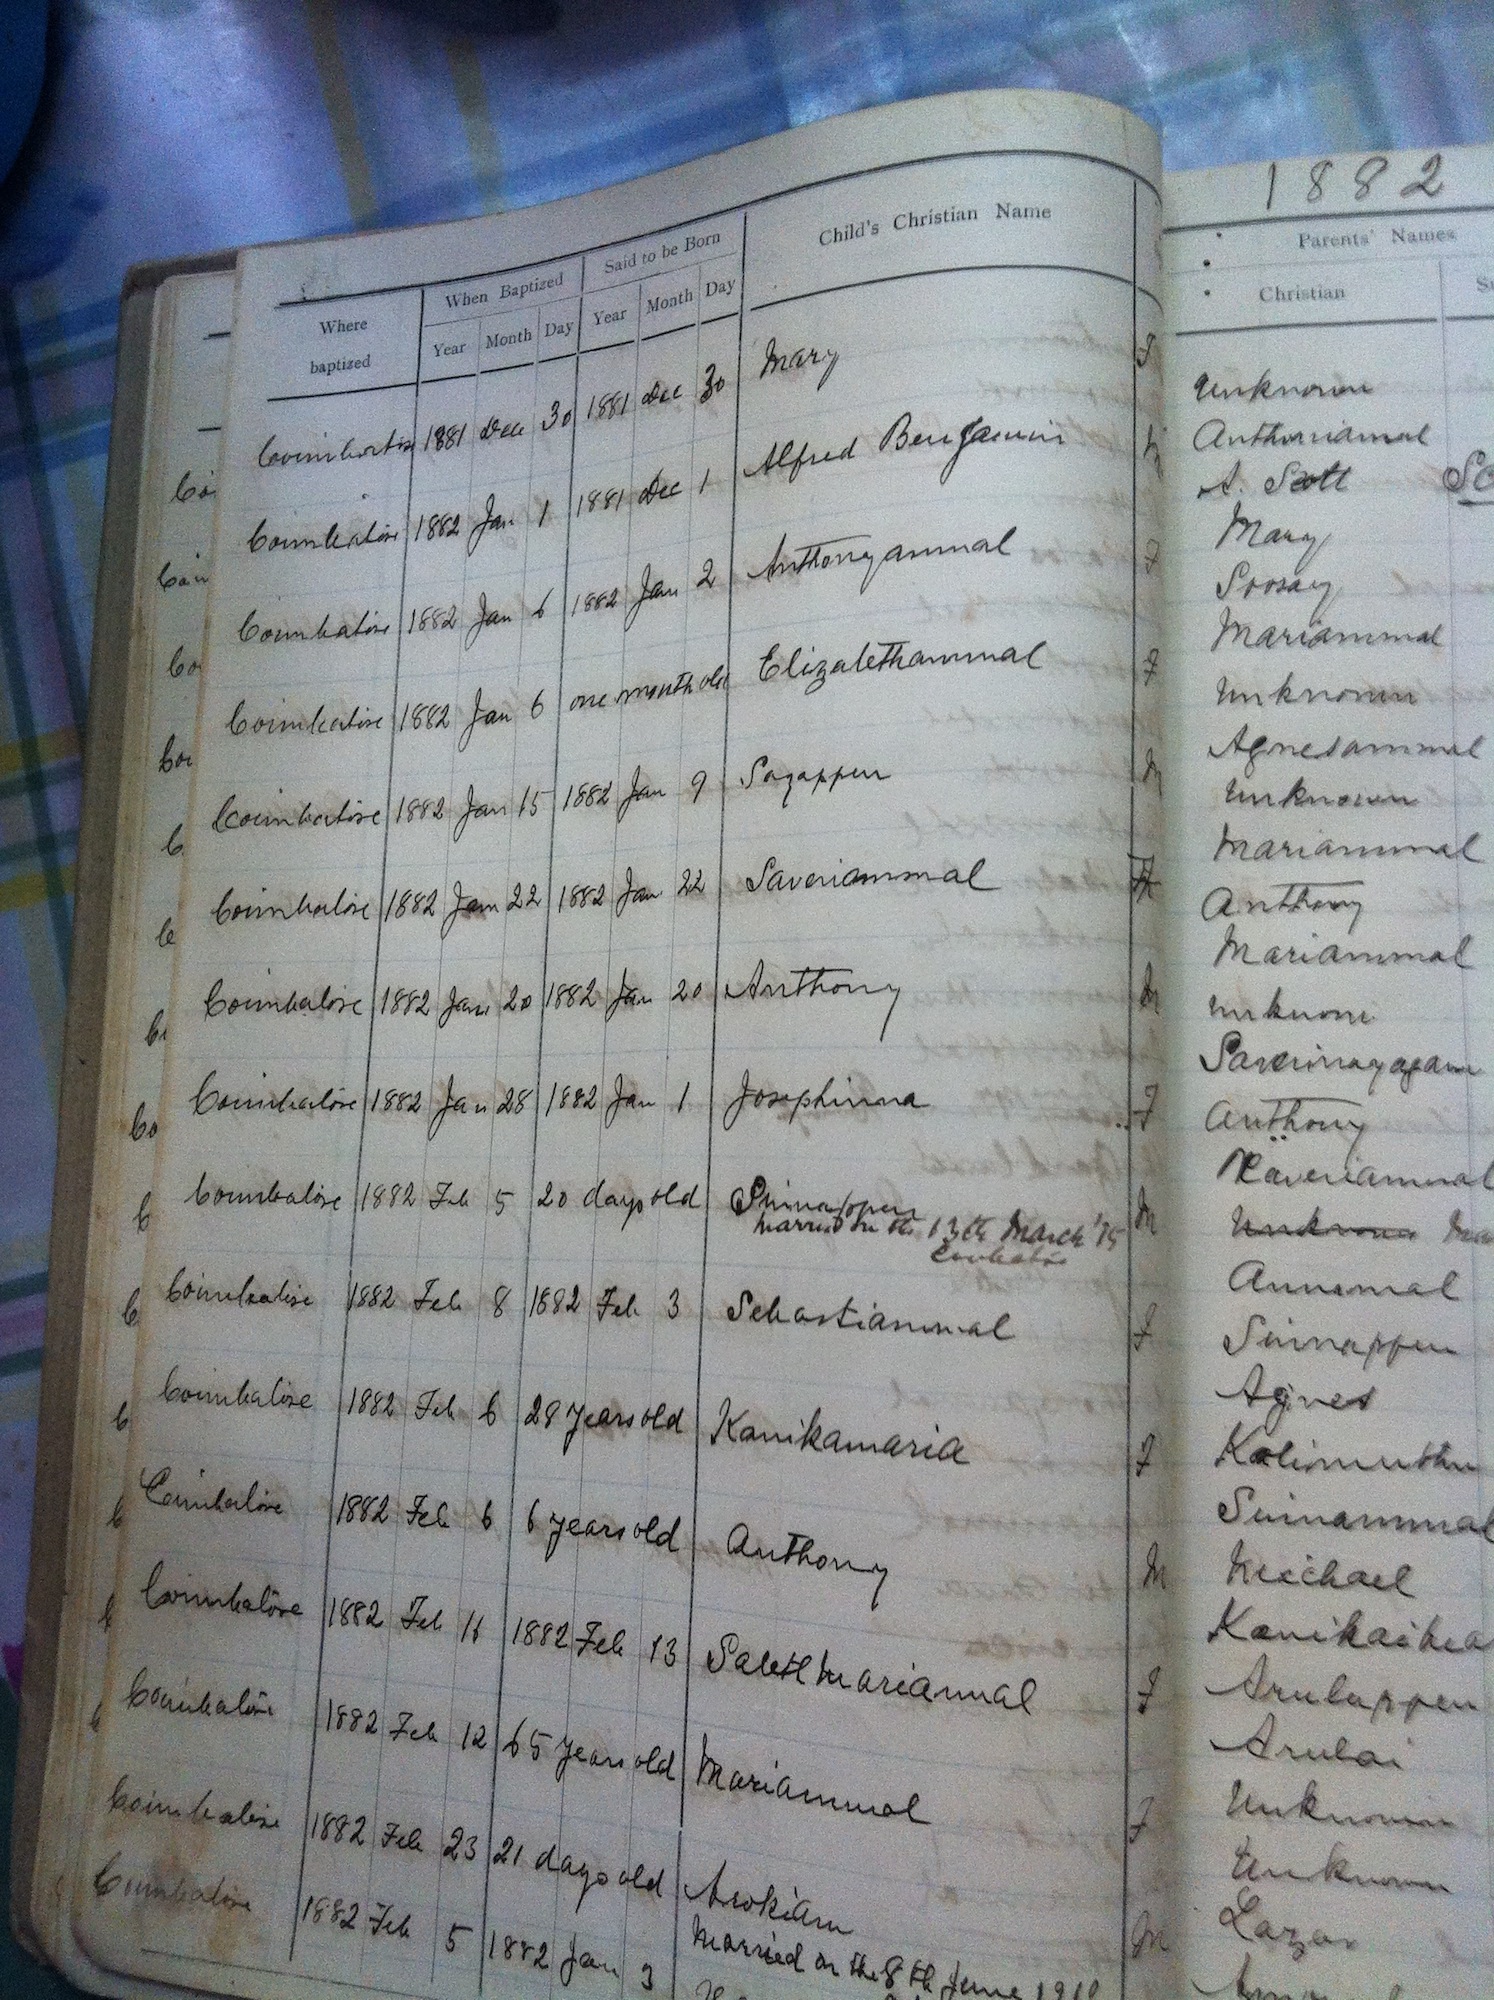 1882
Where baptized
When Baptized
Said to be Born
Child's Christian Name
Parents' Names
Year Month Day Year Month Day
Christian
Coimbatore 1881 Dec 30 1881 Dec 30 Mary F
Unknown
Anthoniamal
Coimbatore 1882 Jan 1 1881 Dec 1 Alfred Benjamin
A. Scott
Mary
Coimbatore 1882 Jan 6 1882 Jan 2 Anthonyammal F
Soosay
Mariammal
Coimbatore 1882 Jan 6 one month old Elizabethammal F
Unknown
Agnesammal
Coimbatore 1882 Jan 15 1882 Jan 9 M
Unknown
Mariammal
Coimbatore 1882 Jan 22 1882 Jan 22 Saveriammal F
Anthony
Mariammal
Coimbatore 1882 Jan 20 1882 Jan 20 Anthony M
unknown
Coimbatore 1882 Jan 28 1882 Jan 1 Josephinna F
Anthony
Xaveriammal
Coimbatore 1882 Feb 5 20 days old Sinnappen M
married on the 13th March '15
Coimbatore
Unknown
Annamal
Coimbatore 1882 Feb 8 1882 Feb 3 Sebastiammal F
Sinnappen
Agnes
Coimbatore 1882 Feb 6 28 years old Kanikamaria F
Kalimuthu
Sinnammal
Coimbatore 1882 Feb 6 6 years old Anthony M
Michael
Coimbatore 1882 Feb 1882 Feb 13 Saleth Mariammal F
Arulappen
Arulai
Coimbatore 1882 Feb 12 65 years old Mariammal F
Unknown
Unknown
Coimbatore 1882 Feb 23 21 days old Arokiam M
Married on the 8th June
Lazar
Coimbatore 1882 Feb 5 1882 Jan 3